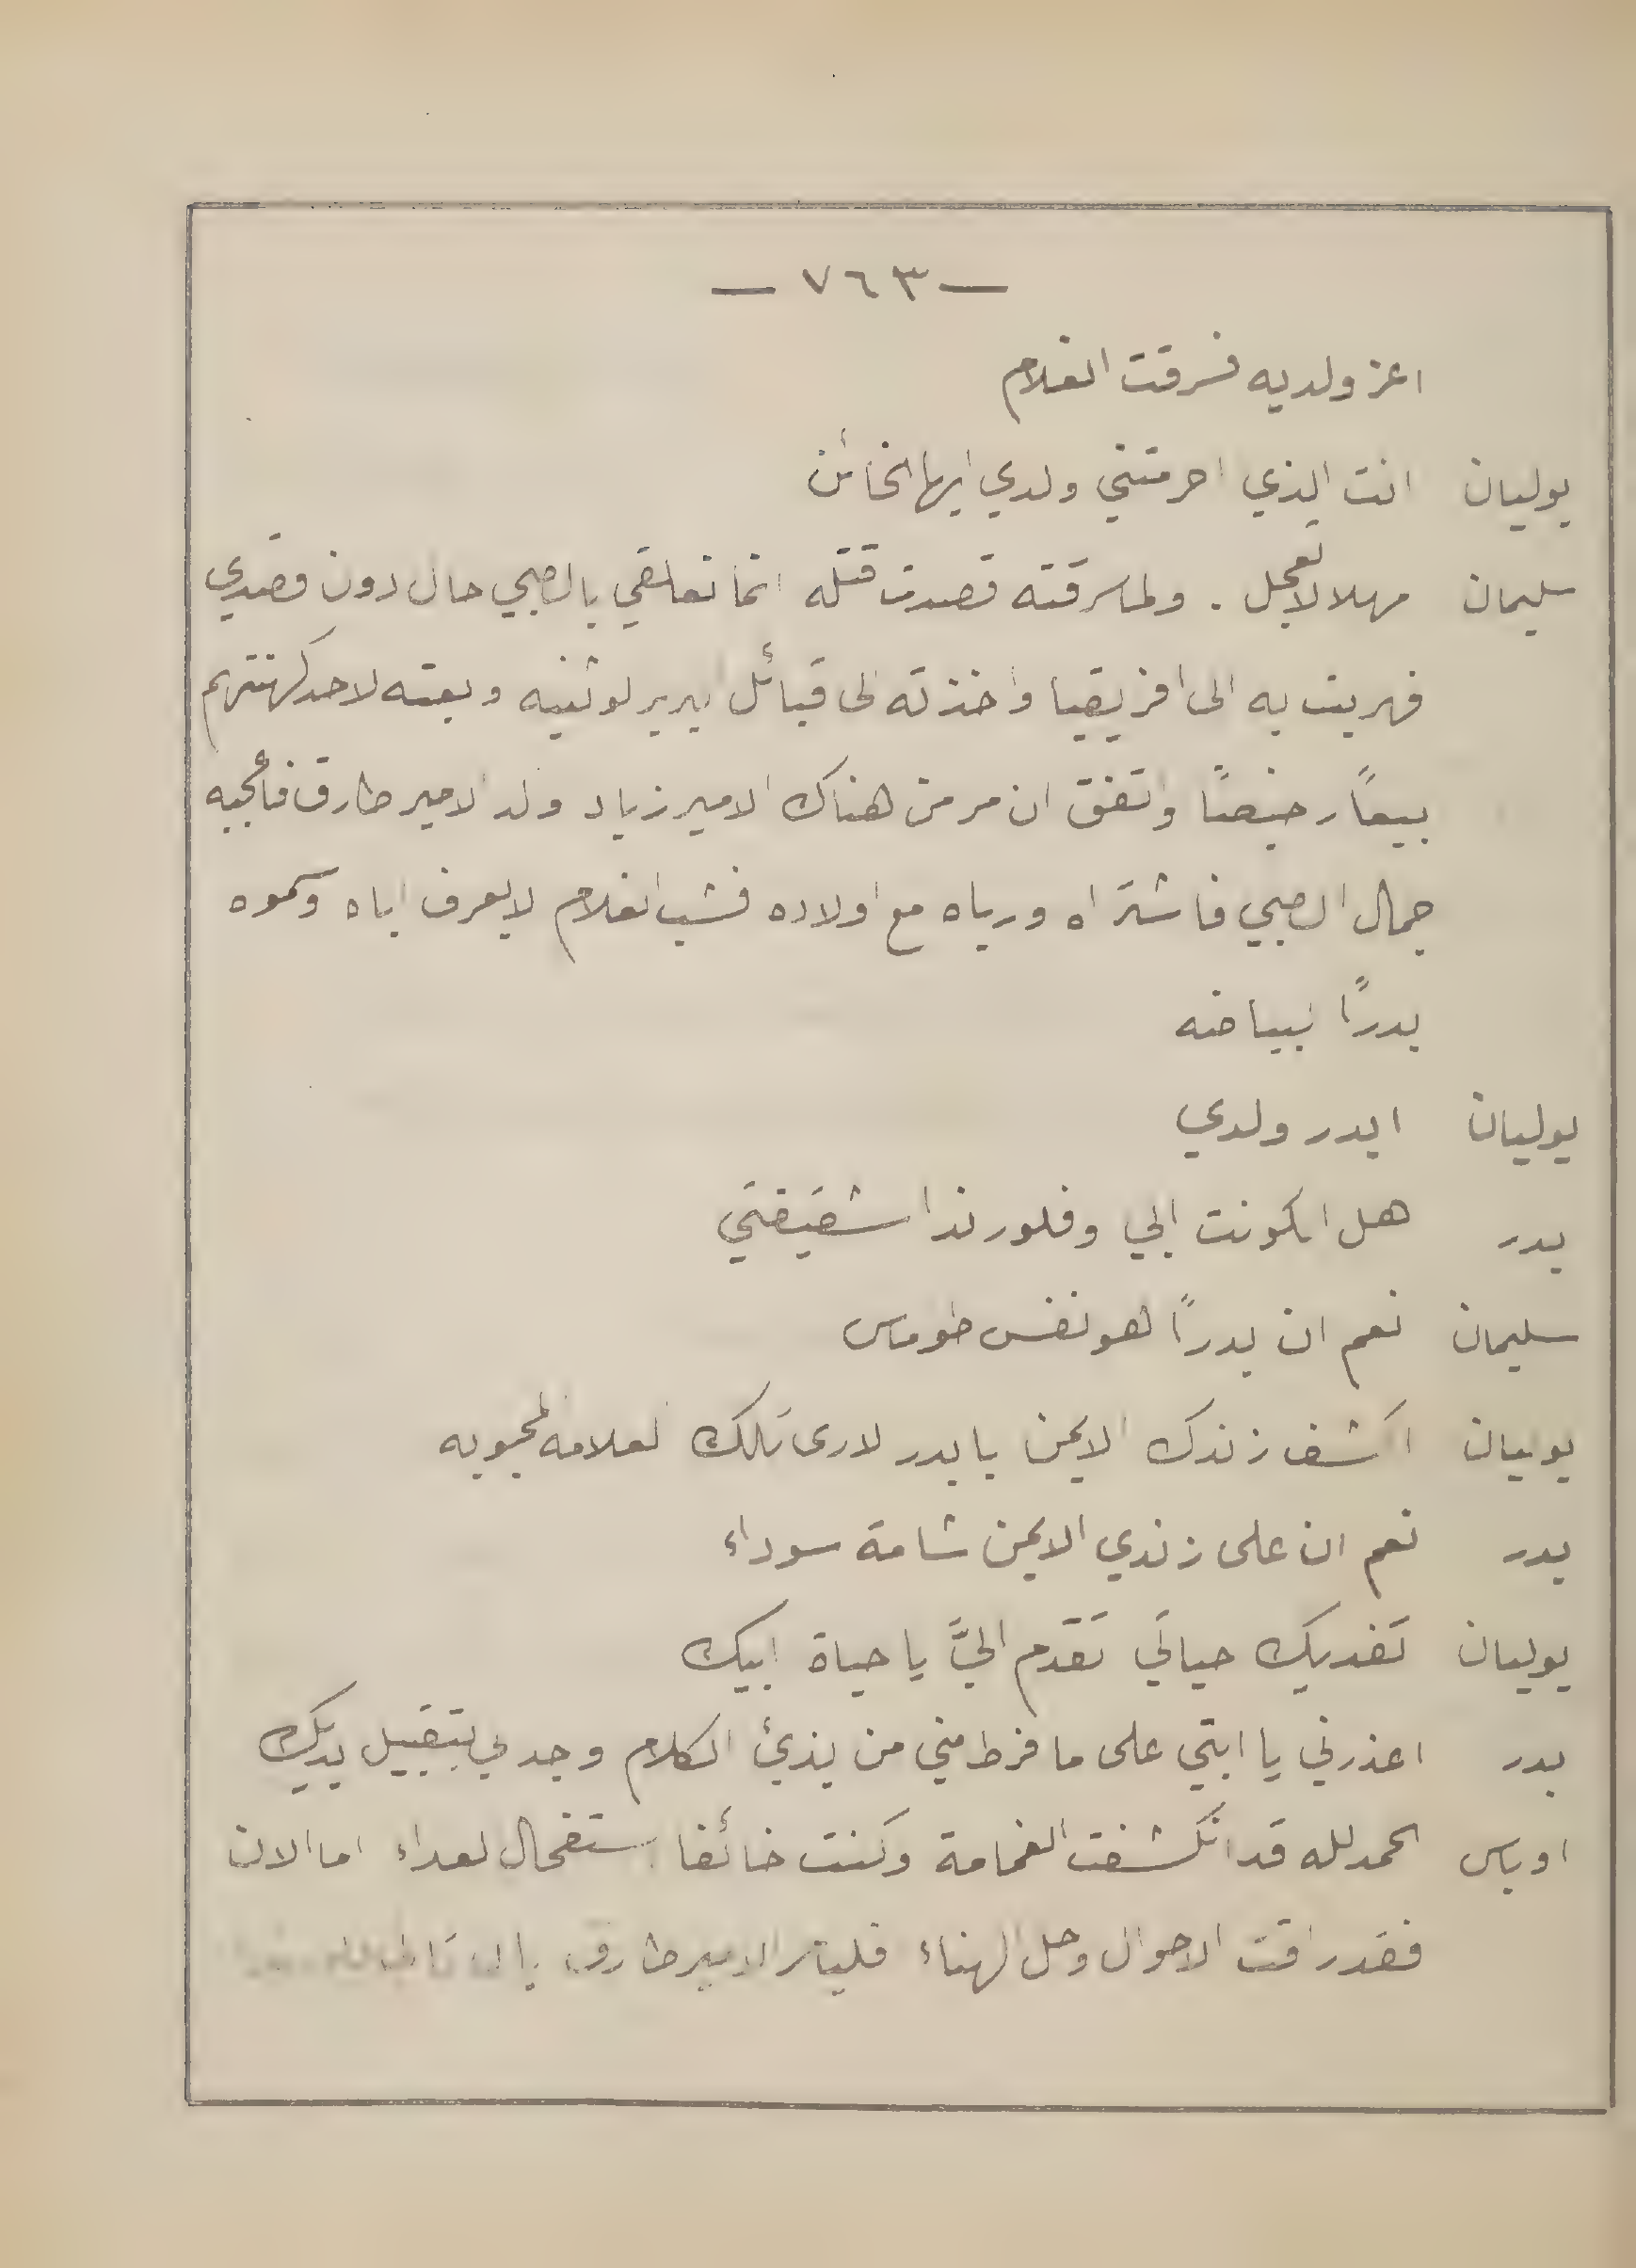 — ٧٦٣ —
اعز ولديه فسرقت الغلام
يوليان انت الذي احرمتني ولدي ايها الخائن
سليمان مهلا لا تعجل . ولما سرقته قصدت قتله انما تعلقي بالصبي حال دون قصدي
فهربت به الى افريقيا واخذته الى قبائل البربر الوثنيه وبعته لاحد كهنتهم
بيعاً رخيصاً واتفق ان مر من هناك الامير زياد ولد الامير طارق فأعجبه
جمال الصبي فاشتراه ورباه مع اولاده فشب الغلام لا يعرف اباه وسموه
بدراً لبياضه
يوليان ابدر ولدي
بدر هل الكونت ابي وفلورندا شقيقتي
سليمان نعم ان بدراً هو نفس طوماس
يوليان اكشف زندك الايمن يا بدر لارى تلك العلامه المحبوبه
بدر نعم ان على زندي الايمن شامة سوداء
يوليان تفديك حياتي تقدم اليَّ يا حياة ابيك
بدر اعذرني يا ابتي على ما فرط مني من بذئ الكلام وجد لي بتقبيل يديك
اوباس الحمد لله قد انكشفت الغمامة وكنت خائفا استفحال العداء اما الان
فقد راقت الاحوال وحل الهناء فليأمر الامير طارق